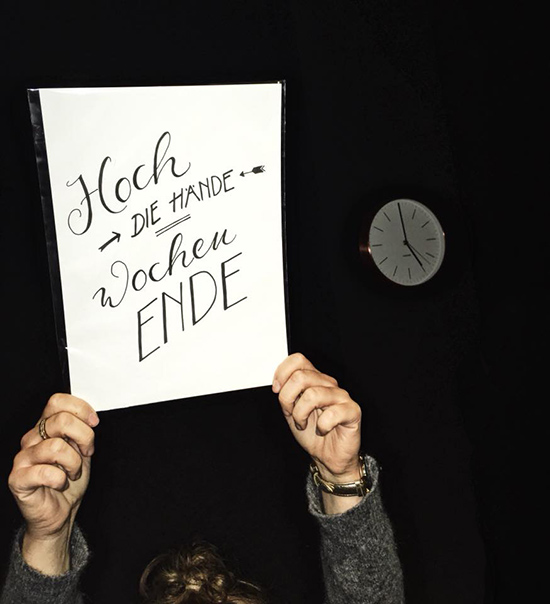 Hoch
DIE HÄNDE
Wochen
ENDE